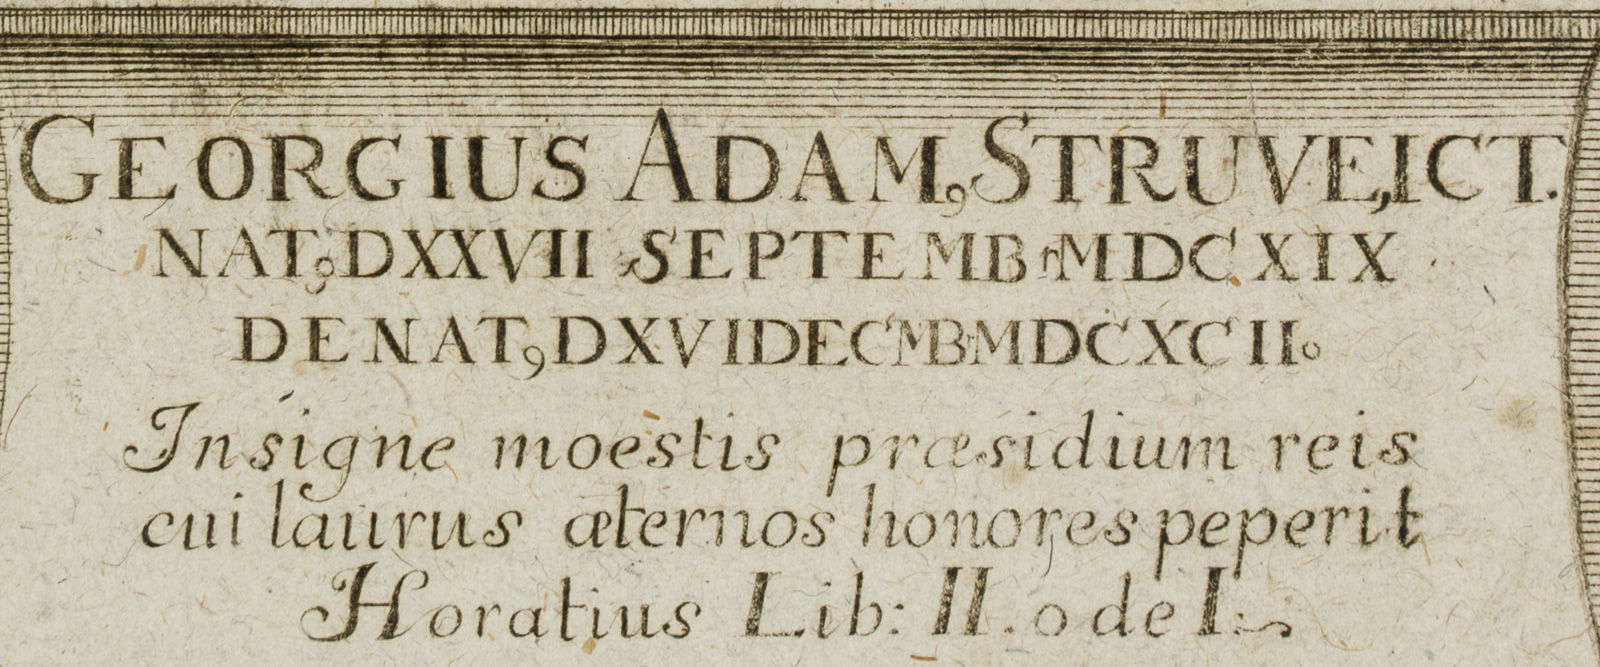 GEORGIUS ADAM, STRUVE, ICT.
NAT, DXXVII SEPTEMBrMDCXIX
DENAT, DXVIDECMBMDCXCII.
Insigne moestis præsidium reis
cui laurus æternos honores peperit
Horatius Lib: II. ode I: